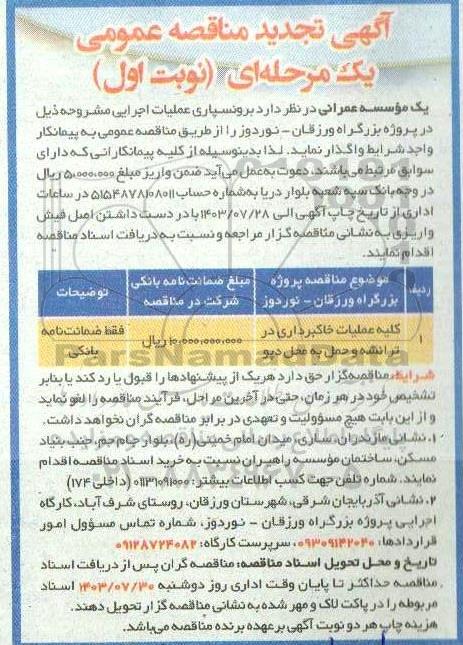 آگهی تجدید مناقصه عمومی
یک مرحله‌ای (نوبت اول)
یک مؤسسه عمرانی در نظر دارد برونسپاری عملیات اجرایی مشروحه ذیل
در پروژه بزرگراه ورزقان - نوردوز را از طریق مناقصه عمومی به پیمانکار
واجد شرایط واگذار نماید. لذا بدینوسیله از کلیه پیمانکارانی که دارای
سوابق مرتبط می‌باشند، دعوت به عمل می‌آید ضمن واریز مبلغ ۵۰۰۰۰۰۰ ریال
در وجه بانک سپه شعبه بلوار دریا به شماره حساب در ساعات
اداری از تاریخ چاپ آگهی الی ۱۴۰۳/۰۷/۲۸ با در دست داشتن اصل فیش
واریزی به نشانی مناقصه گزار مراجعه و نسبت به دریافت اسناد مناقصه
اقدام نمایند.
ردیف
موضوع مناقصه پروژه بزرگراه ورزقان - نوردوز
مبلغ ضمانت نامه بانکی شرکت در مناقصه
توضیحات
۱
کلیه عملیات خاکبرداری در ترانشه و حمل به محل دپو
۱۰,۰۰۰,۰۰۰,۰۰۰ ریال
فقط ضمانت نامه بانکی
ParsNamadData
شرایط: مناقصه گزار حق دارد هر یک از پیشنهادها را قبول یا رد کند یا بنابر
تشخیص خود در هر زمان، حتی در آخرین مراحل، فرآیند مناقصه را لغو نماید
و از این بابت هیچ مسؤولیت و تعهدی در برابر مناقصه گران نخواهد داشت.
۱. نشانی مازندران، ساری، میدان امام خمینی(ره)، بلوار جام جم، جنب بنیاد
مسکن، ساختمان مؤسسه راهبران نسبت به خرید اسناد مناقصه اقدام
نمایند. شماره تلفن جهت کسب اطلاعات بیشتر: ۰۱۱۳۱۰۹۱۰۰۰ (داخلی ۱۷۴)
۲. نشانی آذربایجان شرقی، شهرستان ورزقان، روستای شرف آباد، کارگاه
اجرایی پروژه بزرگراه ورزقان - نوردوز، شماره تماس مسؤول امور
قراردادها: ۰۹۳۰۹۱۴۲۰۴۰، سرپرست کارگاه: ۰۹۱۲۸۷۲۴۰۸۲
تاریخ و محل تحویل اسناد مناقصه: مناقصه گران پس از دریافت اسناد
مناقصه حداکثر تا پایان وقت اداری روز دوشنبه ۱۴۰۳/۰۷/۳۰ اسناد
مربوطه را در پاکت لاک و مهر شده به نشانی مناقصه گزار تحویل دهند.
هزینه چاپ هر دو نوبت آگهی بر عهده برنده مناقصه می‌باشد.